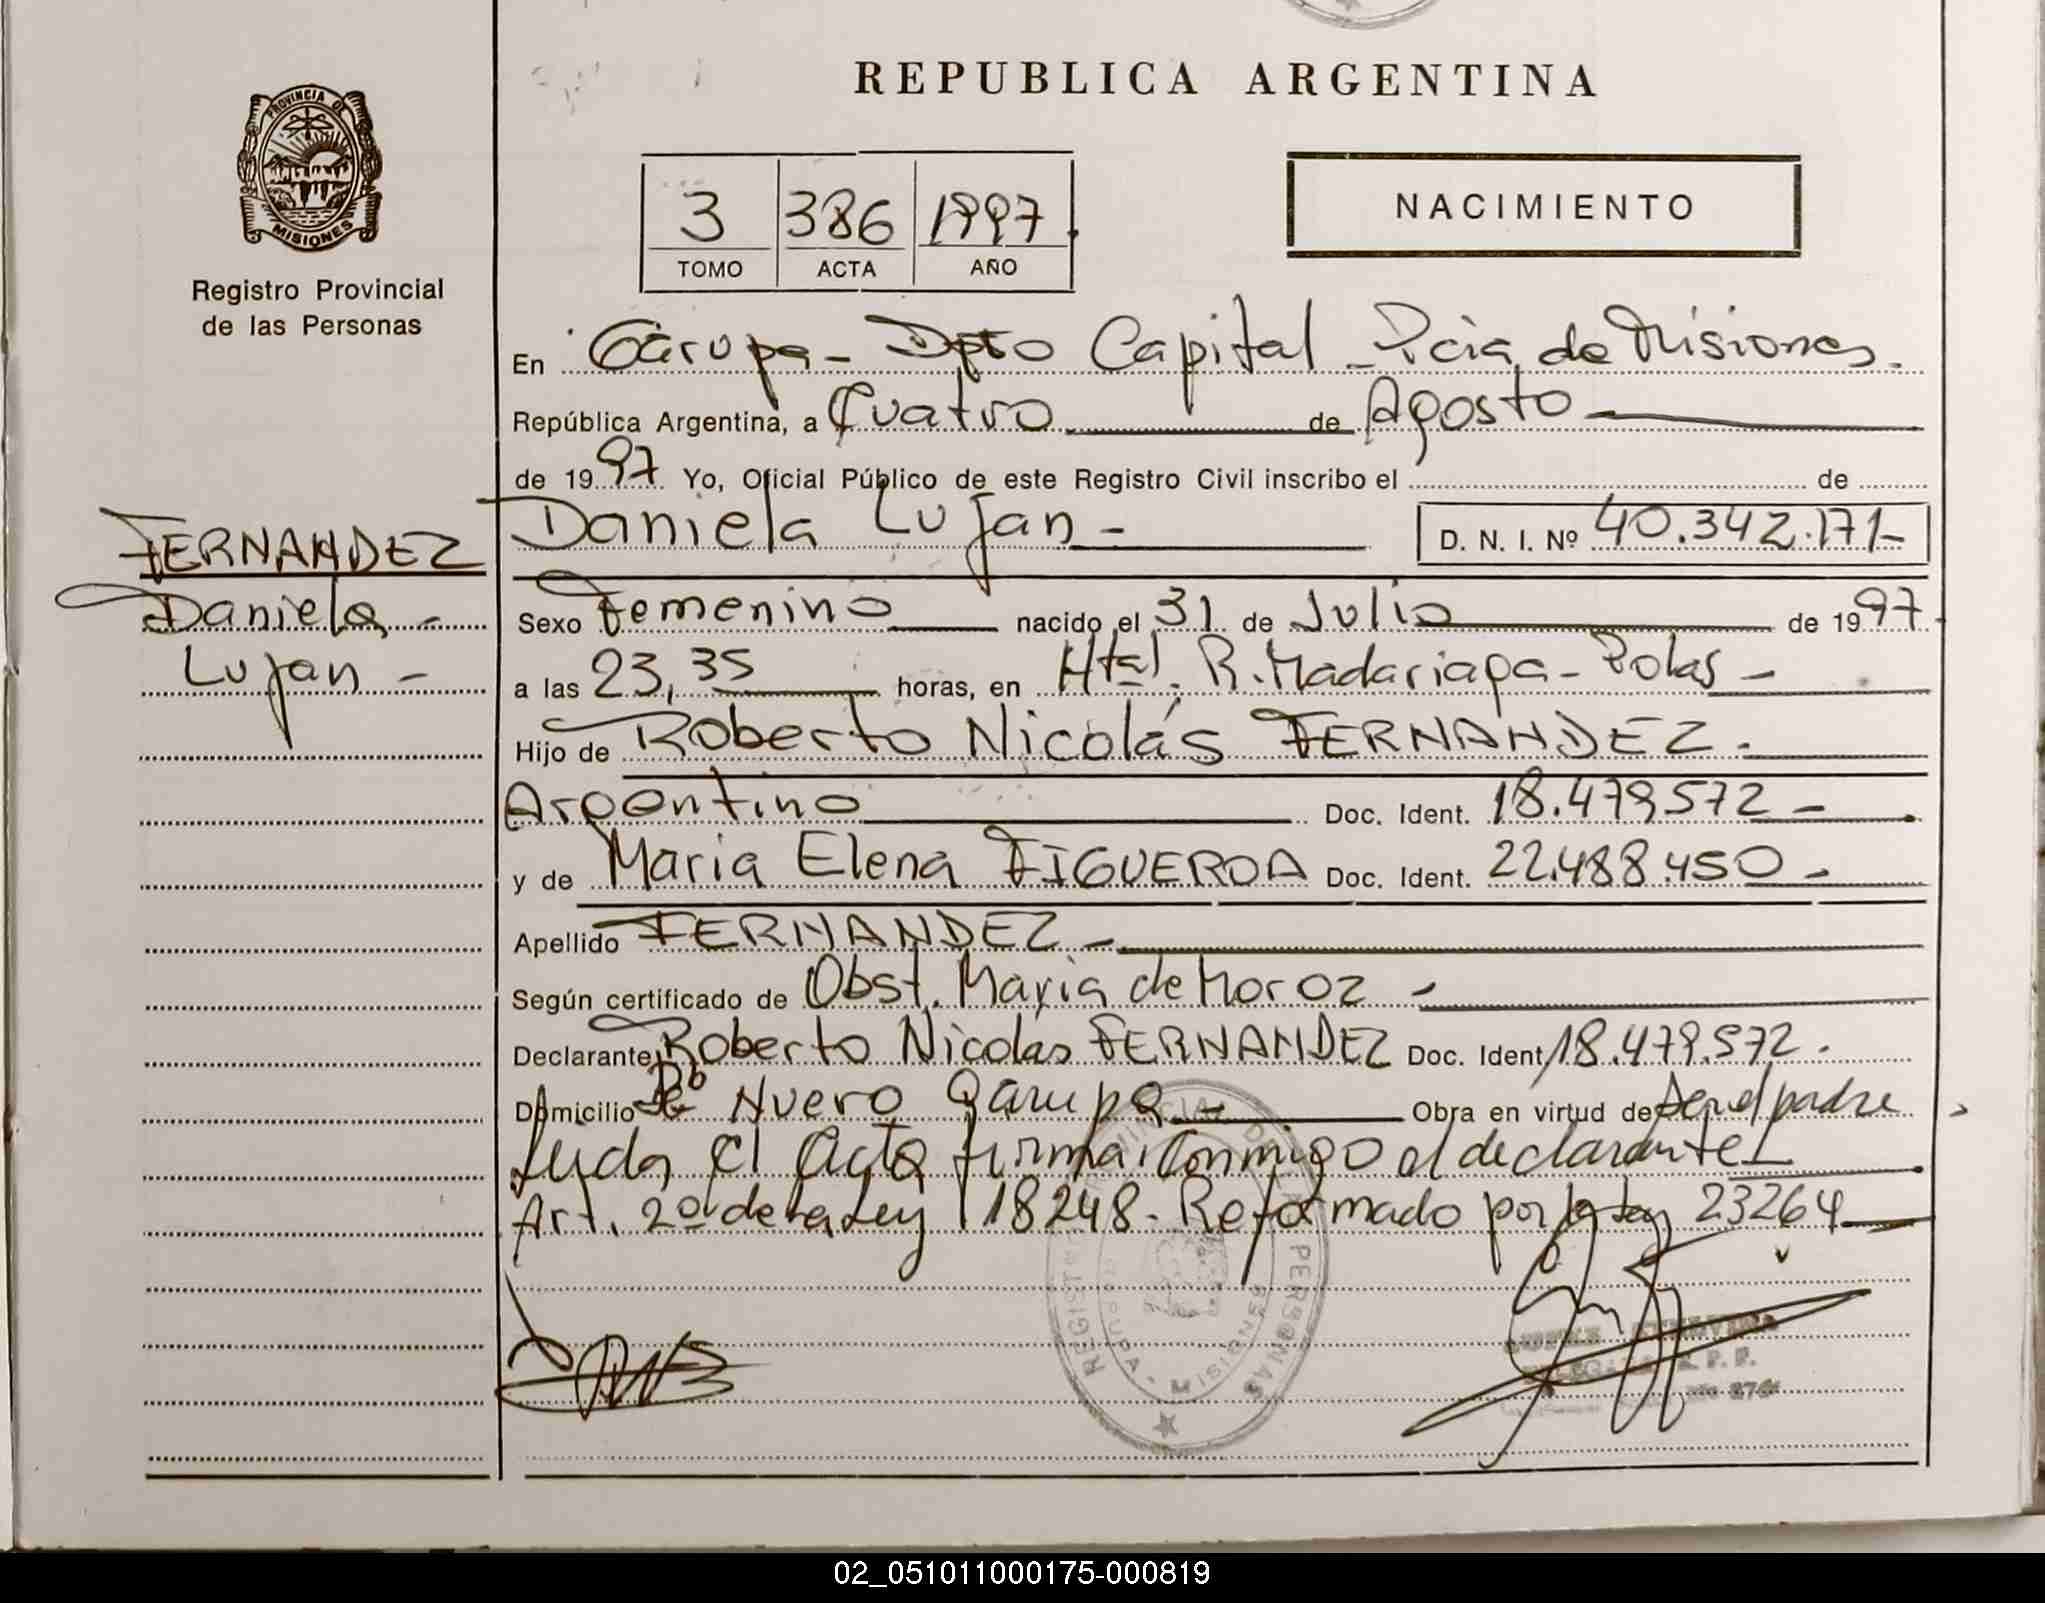 REPUBLICA ARGENTINA
PROVINCIA DE
MISIONES
Registro Provincial
de las Personas
3 386 1997
TOMO ACTA AÑO
NACIMIENTO
En Garupa - Dpto Capital - Pcia de Misiones.
República Argentina, a Cuatro de Agosto
de 1997 Yo, Oficial Público de este Registro Civil inscribo el de
FERNANDEZ
Daniela
Lujan -
Daniela Lujan - D. N. I. Nº 40.342.171-
Sexo Femenino nacido el 31 de Julio de 1997
a las 23,35 horas, en Htal. R. Madariaga - Pdas -
Hijo de Roberto Nicolás FERNANDEZ.
Argentino Doc. Ident. 18.479.572 -
y de Maria Elena FIGUEROA Doc. Ident. 22.488.450 -
Apellido FERNANDEZ -
Según certificado de Obst. Maria de Moroz -
Declarante Roberto Nicolas FERNANDEZ Doc. Ident 18.479.572.
Domicilio Bº Nuevo Garupa - Obra en virtud de ser el padre
Leida el Acta firma conmigo el declarante
Art. 2º de la Ley 18248 - Reformado por la Ley 23264
REGISTRO PROVINCIAL DE LAS PERSONAS
GARUPA - MISIONES
02_051011000175-000819